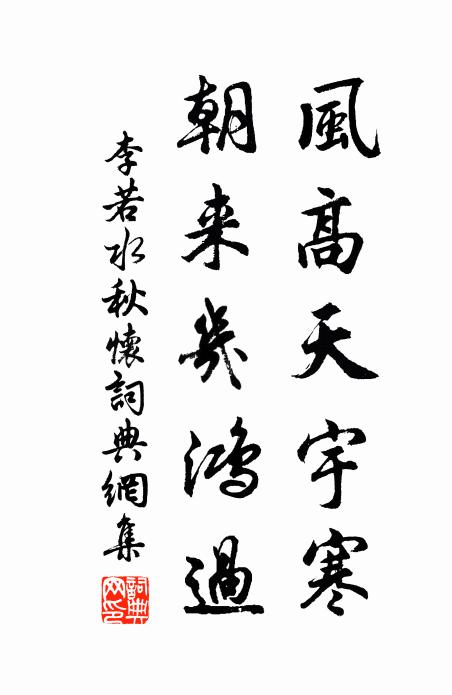 風高天宇寒
朝来幾鴻過
李若水秋懷詞典網集
詞典網印